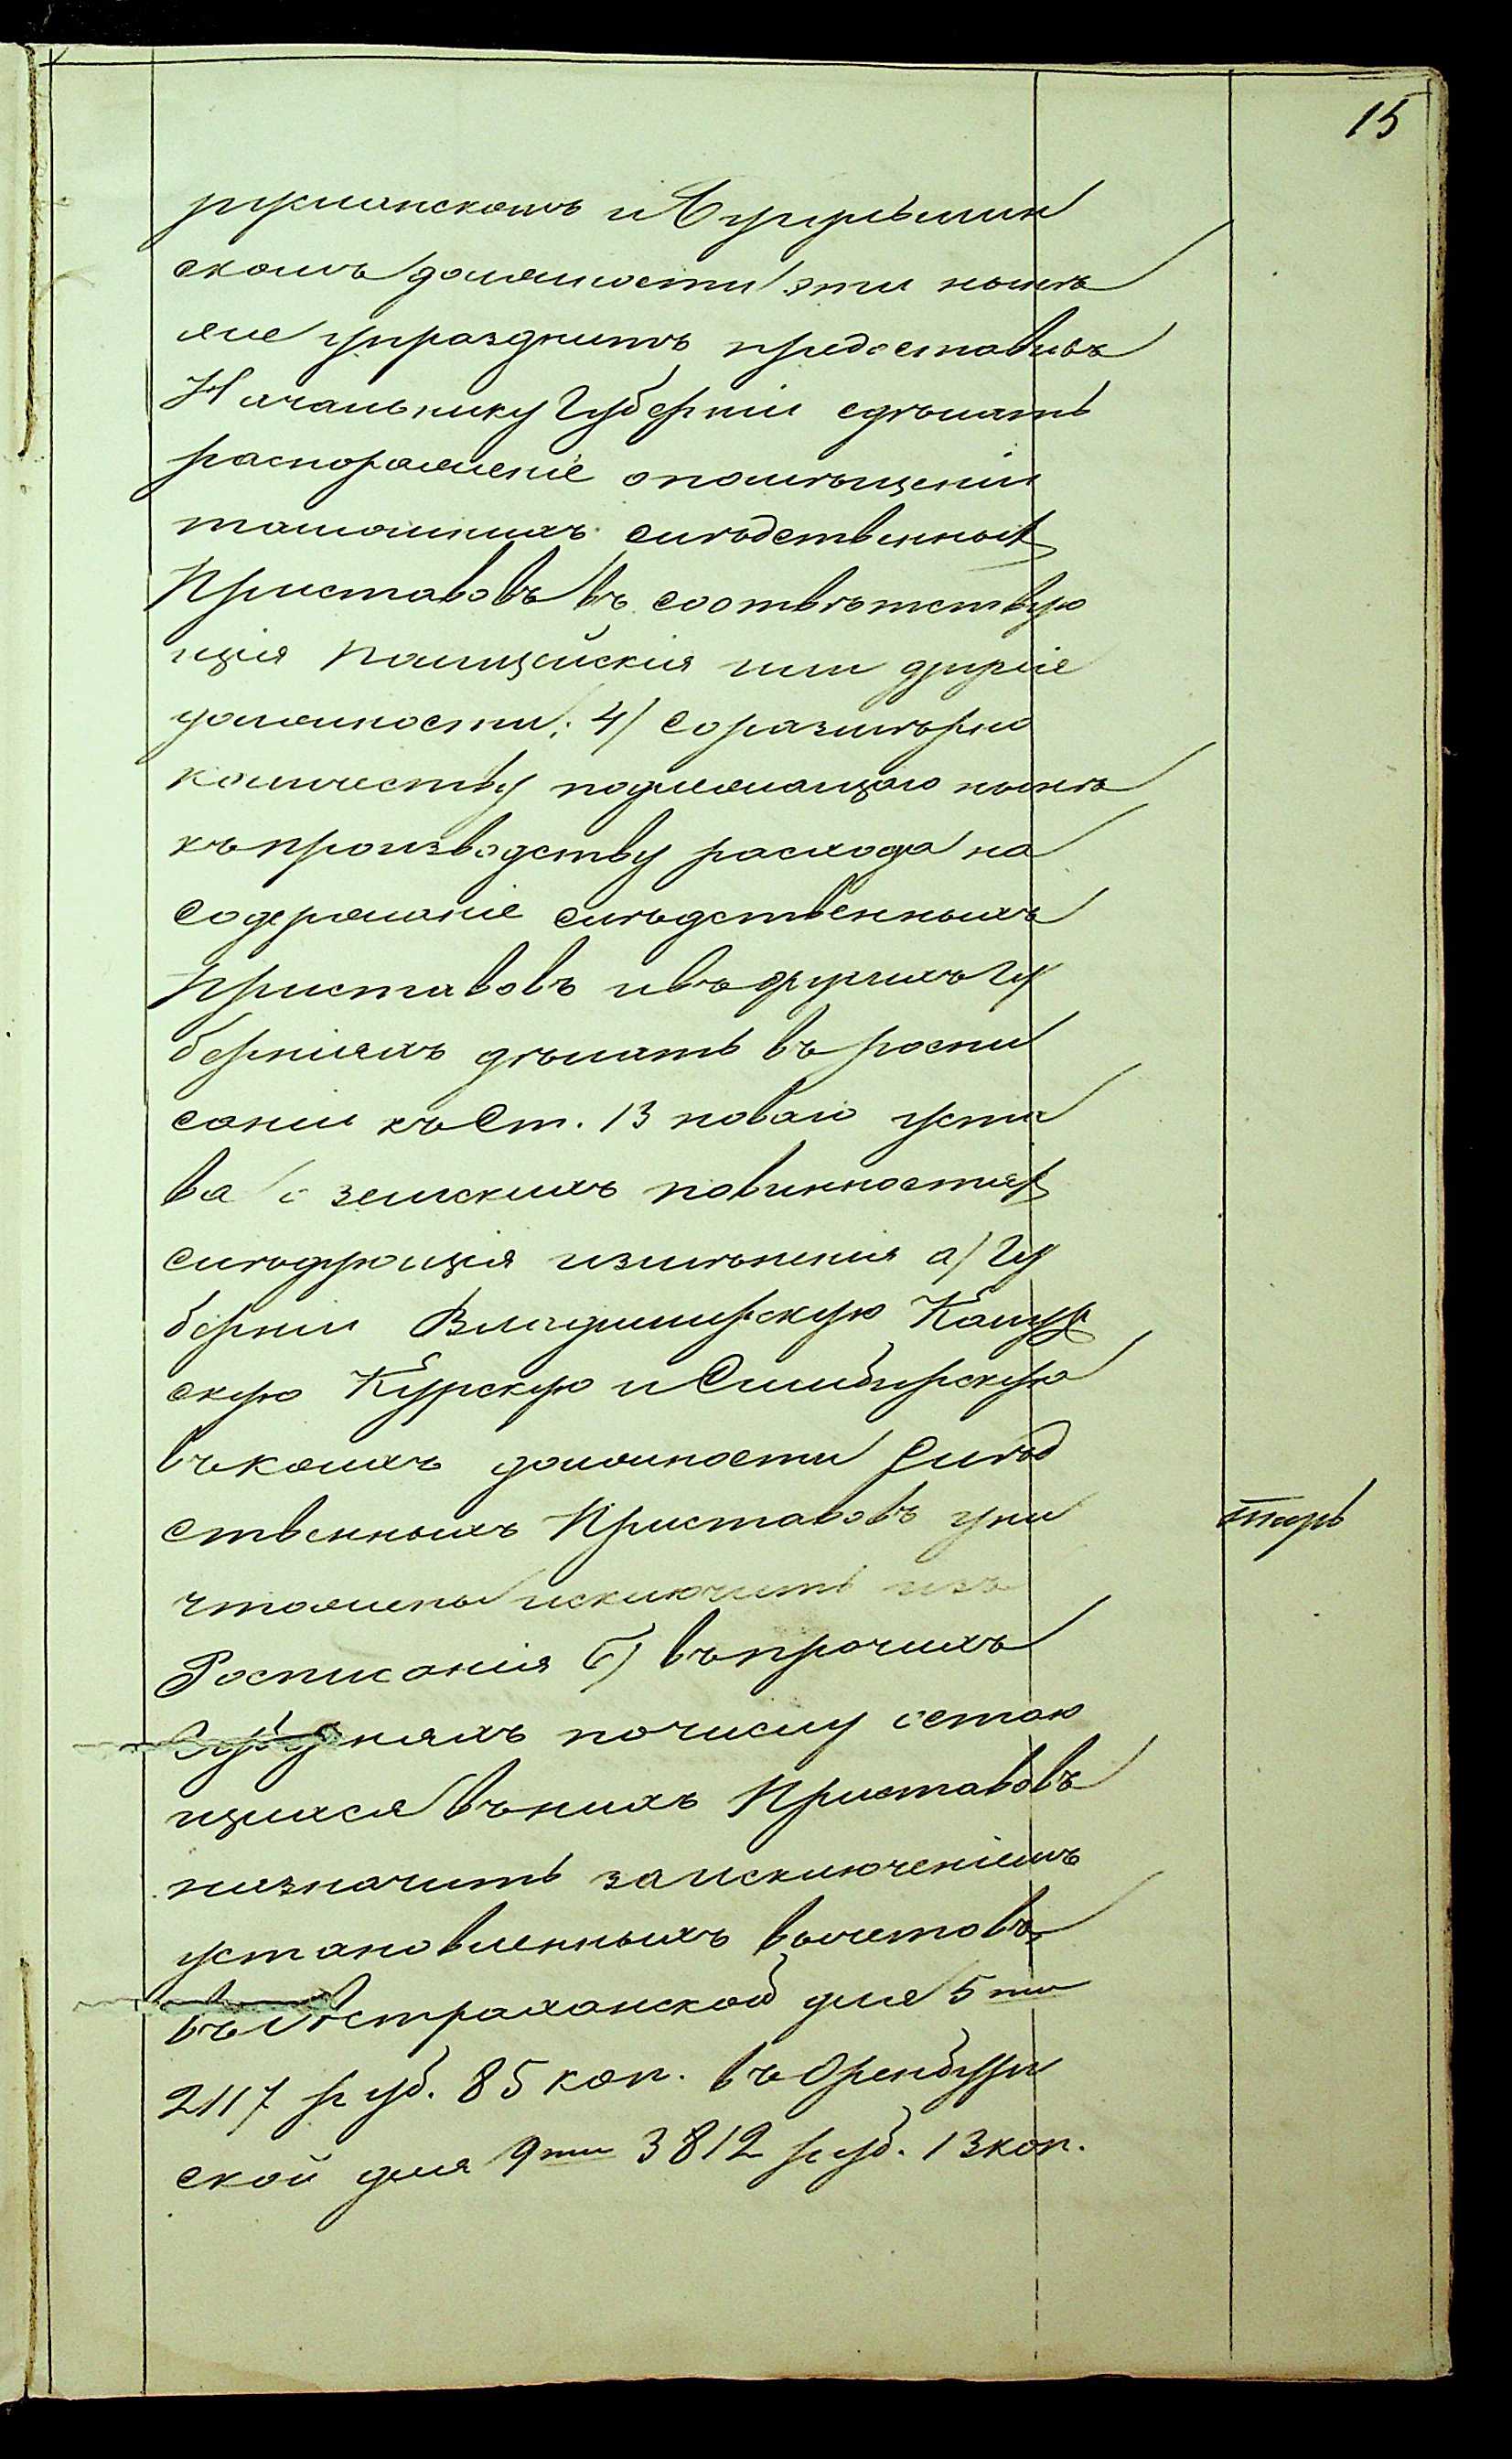 15
ружианскомъ и Бугурльмин
скомъ должности эти нынѣ
же упразднить предоставивъ
Начальнику Губерніи сдѣлать
распоряженіе о помѣщеніи
тамошнихъ слѣдственныхъ
Приставовъ въ соотвѣтствую
щія Полицейскія или другіе
должности; 4) Соразмѣрно
количеству подлежащаго нынѣ
къ производству расхода на
содержаніе слѣдственныхъ
Приставовъ и въ другихъ Гу
берніяхъ дѣлать въ роспи
саніи къ Ст. 13 новаго уста
ва о земскихъ повинностях
слѣдующія измѣненія а) Гу
берніи Владимирскую Калуж
скую Курскую и Симбирскую
въ коихъ должности Слѣд
ственныхъ Приставовъ уни
чтожены исключить изъ
Росписанія б) въ прочихъ
Губерніяхъ по числу остаю
щихся въ нихъ Приставовъ
назначить за исключеніемъ
установленныхъ вычетовъ,
въ Астраханской для 5ти
2117 руб. 85 коп. въ Оренбург
ской для 9ти 3812 руб. 13 коп.